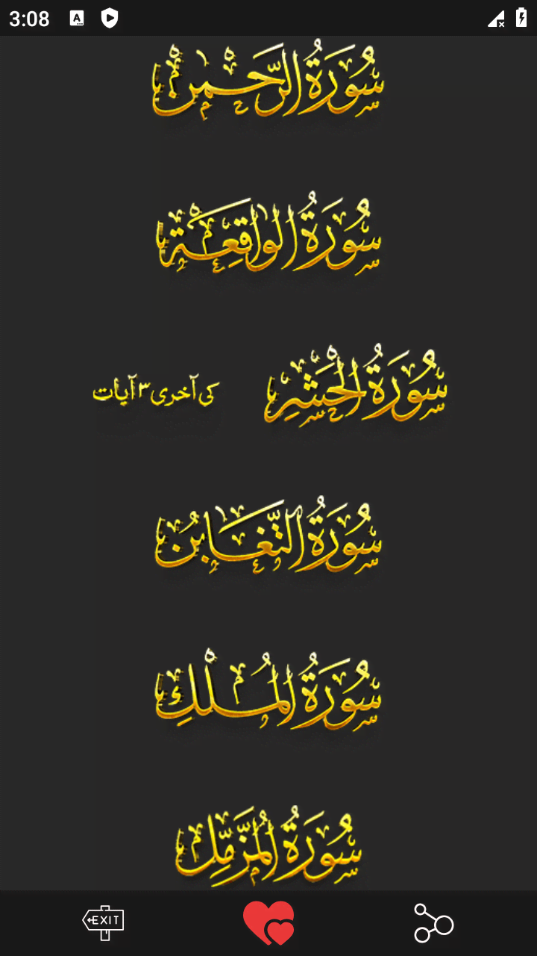 3:08
A
سُورَةُ الرَّحْمٰن
سُورَةُ الْوَاقِعَة
سُورَةُ الْحَشْرِ کی آخری ۳ آیات
سُورَةُ التَّغَابُن
سُورَةُ الْمُلْكِ
سُورَةُ الْمُزَّمِّل
EXIT